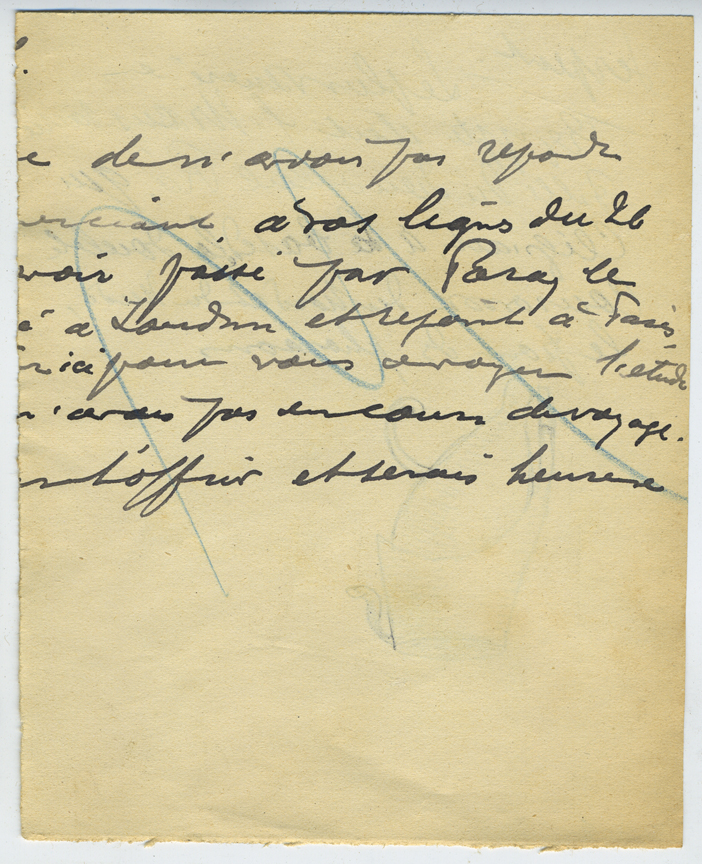 e de n'avoir pas repondu
erciant à vos lignes du 26
voir passé par Paray le
é a London et repart à Paris
ici pour vous envoyer l'étude
n'avais pas en cours de voyage.
t'offrir et serais heureuse